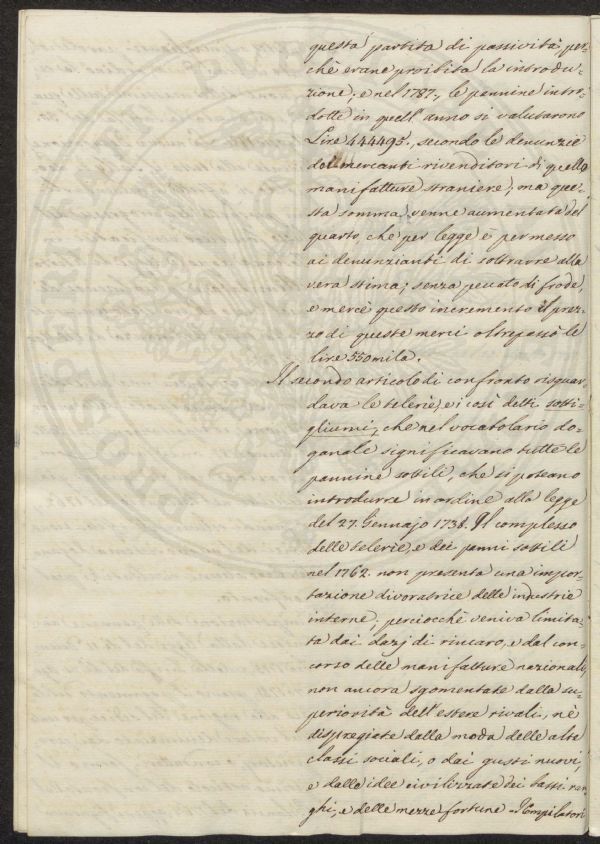 questa partita di passività, per-
chè erane proibita la introdu-
zione; e nel 1787., le pannine intro-
dotte in quell'anno si valutarono
Lire 444495., secondo le denunzie
de' mercanti rivenditori di quelle
manifatture straniere; ma que-
sta somma venne aumentata del
quarto, che per legge è permesso
ai denunzianti di sottrarre alla
vera stima; senza peccato di frode,
e mercè questo incremento il prez-
zo di queste merci oltrepassò le
lire 550mila.
Il secondo articolo di confronto risguar-
dava le telerie, e i così detti sotti-
gliumi, che nel vocabolario do-
ganale significavano tutte le
pannine sottili, che si poteano
introdurre in ordine alla legge
del 27. Gennajo 1738. Il complesso
delle telerie, e dei panni sottili
nel 1762. non presenta una impor-
tazione divoratrice delle industrie
interne, perciocchè veniva limita-
ta dai dazj di rincaro, e dal con-
corso delle manifatture nazionali,
non ancora sgomentate dalla su-
periorità dell'estere rivali, nè
dispregiate dalla moda delle alte
classi sociali, o dai gusti nuovi,
e dalle idee civilizzate dei bassi ran-
ghi, e delle mezze fortune. I Compilatori